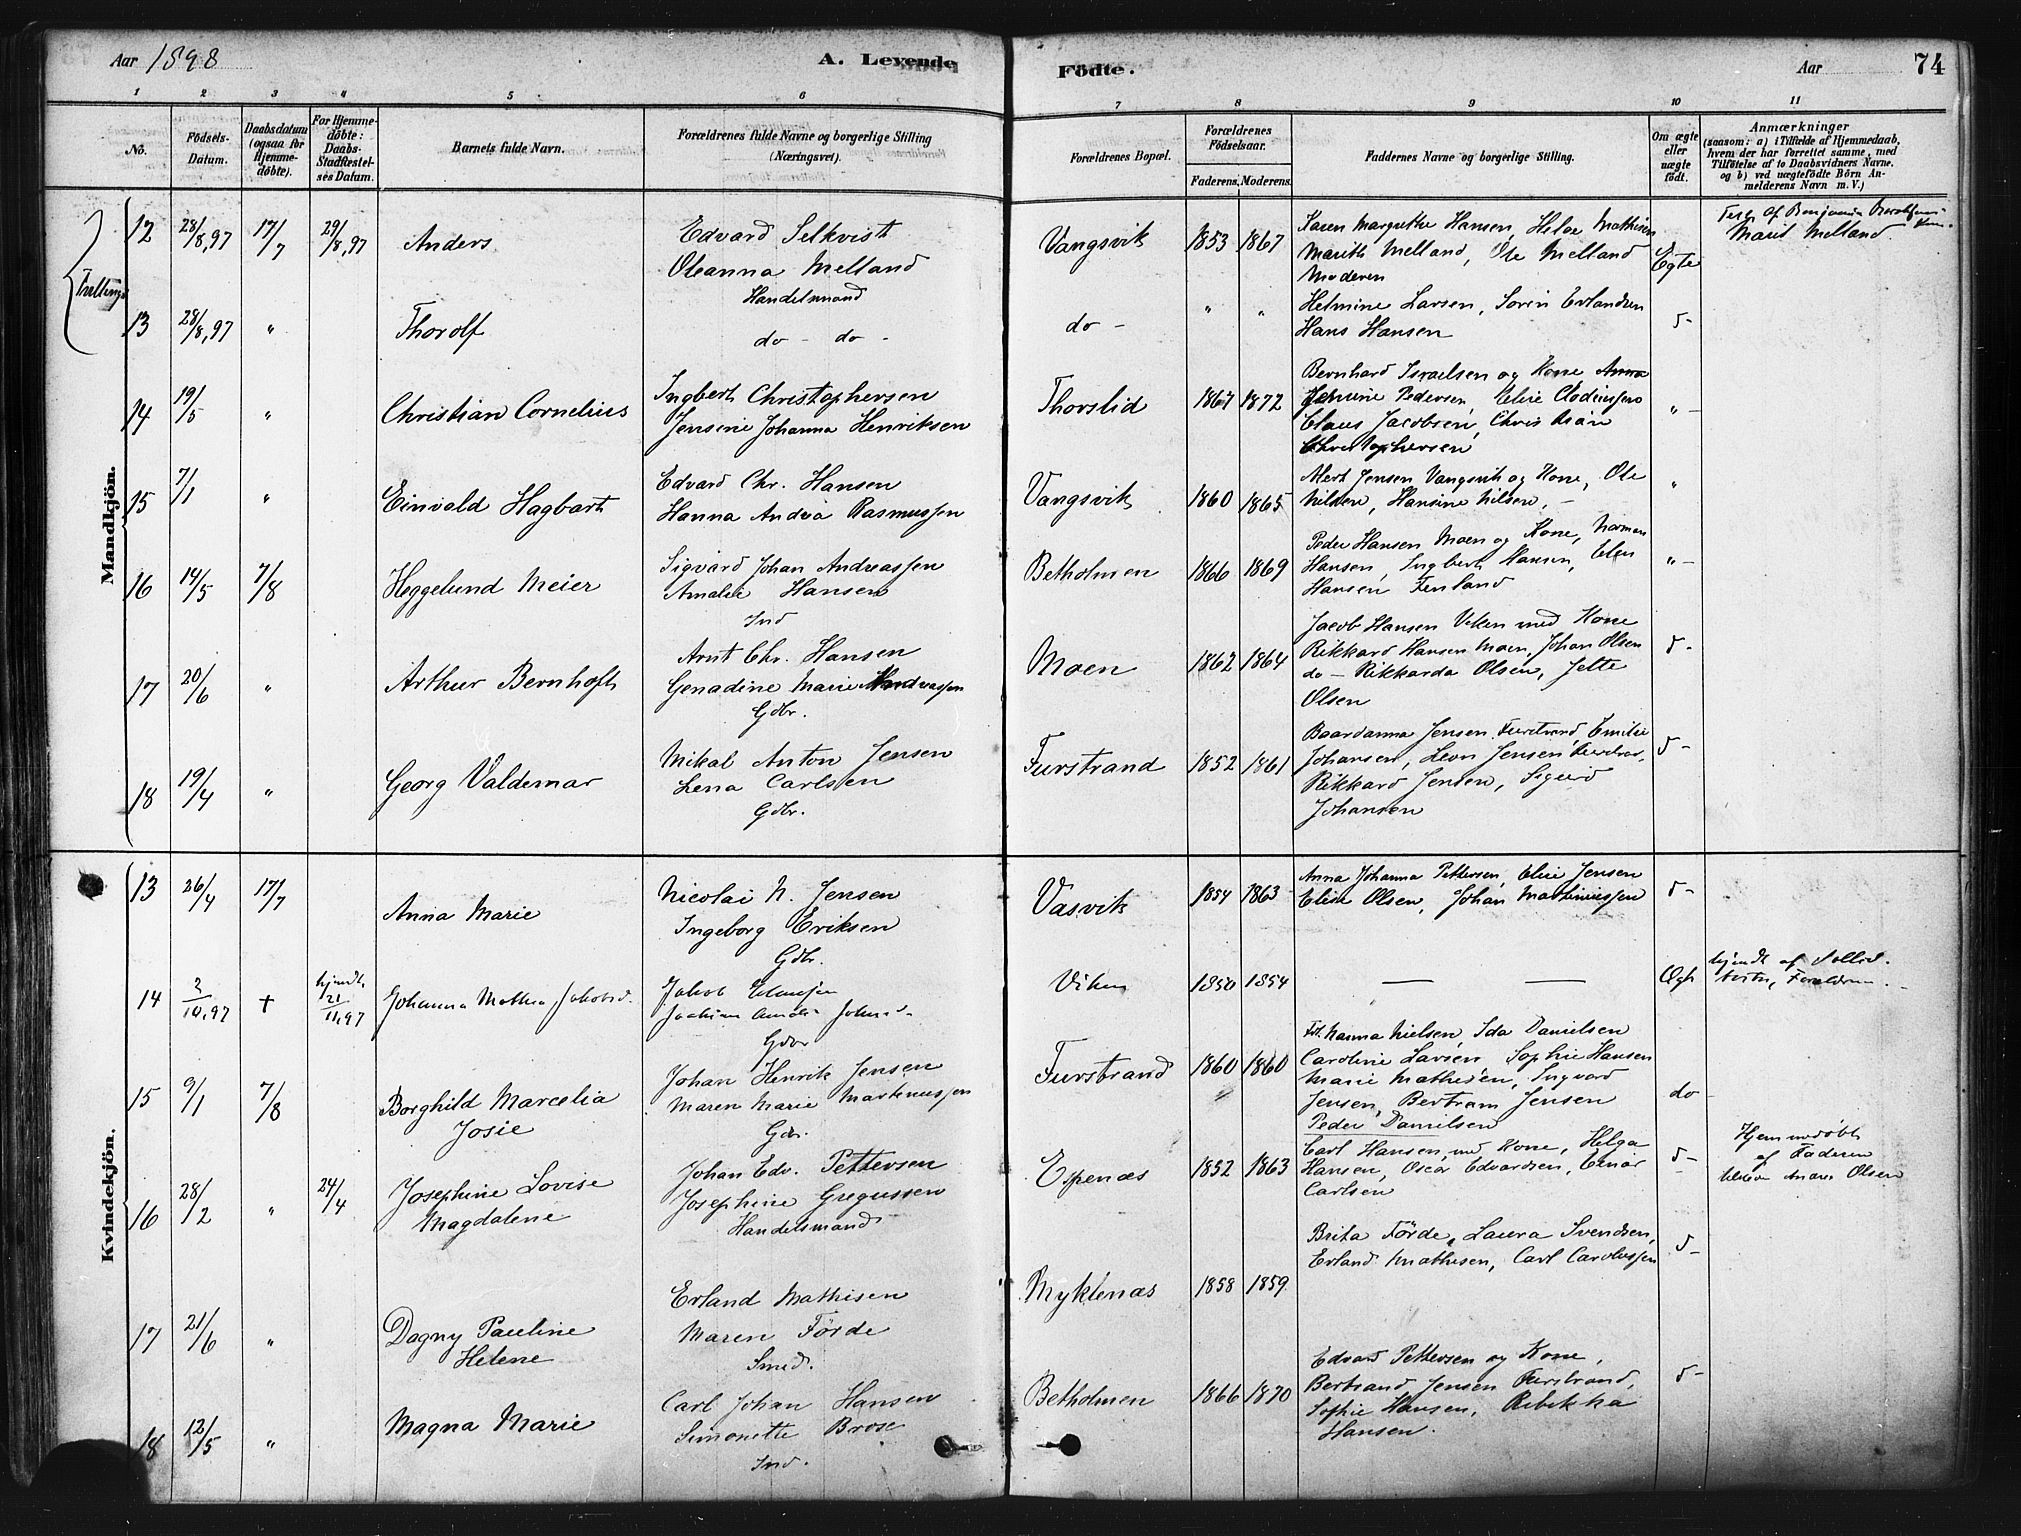 Aar 1898
A. Levende
Födte.
Aar
74
1 2 3 4 5 6 7 8 9 10 11
No.
Födsels-Datum.
Daabsdatum (ogsaa for Hjemme-döbte).
For Hjemme-döbte: Daabs-Stadfæstel-ses Datum.
Barnets fulde Navn.
Forældrenes fulde Navne og borgerlige Stilling (Næringsvei).
Forældrenes Bopæl.
Forældrenes Födselsaar.
Faderens. Moderens.
Faddernes Navne og borgerlige Stilling.
Om ægte eller uægte födt.
Anmærkninger
(saasom: a) i Tilfælde af Hjemmedaab, hvem der har forrettet samme, med Tilföielse af to Daabsvidners Navne. og b) ved uægtefödte Börn An-melderens Navn m. V.)
Mandkjön.
Tvillinger
12 28/8,97 17/7 29/8,97 Anders
Edvard Selkvist
Oleanna Melland
Handelsmand
Vangsvik 1853 1867
Karen Margrethe Hansen, Helge Mathisen
Marith Melland, Ole Melland
Moderen
Egte
Marit Melland.
13 28/8,97 " Thorolf
do - do -
do - " "
Helmine Larsen, Sören Erlandsen
Hans Hansen
d-
14 19/5 " Christian Cornelius
Ingbert Christophersen
Jensine Johanna Henriksen
Thorslid 1867 1872
Bernhard Israelsen og Kone Anna
Pedersen, Elise
Claus Jacobsen, Christian
Christophersen
" -
15 7/1 " Einvald Hagbart
Edvard Chr. Hansen
Hanna Andrea Rasmussen
Vangsvik 1860 1865
Jensen Vangsvik og Kone, Ole
Nilsen, Hansine Nilsen, -
"
16 14/5 7/8 Heggelund Meier
Sigvard Johan Andreassen
Amalie Hansen
Ind
Betholmen 1866 1869
Peder Hansen Moen og Kone, Norman
Hansen, Ingbert Hansen, Elen
Hansen Finland
" -
17 20/6 " Arthur Bernhoft
Arnt Chr. Hansen
Genadine Marie Andreassen
Gdbr.
Moen 1862 1864
Jacob Hansen Viken med Kone
Rikkard Hansen Moen, Johan Olsen
do - Rikkarda Olsen, Jette
Olsen
d-
18 19/4 " Georg Valdemar
Mikal Anton Jensen
Lena Carlsen
Gdbr.
Furstrand 1852 1861
Baardanna Jensen Furstrand Emilie
Johansen, Leon Jensen
Rikkard Jensen, Sigurd
Johansen
d-
Kvindekjön.
13 26/4 17/7 Anna Marie
Nicolai N. Jensen
Ingeborg Eriksen
Gdbr.
Vasvik 1854 1863
Anna Johanna Pettersen, Elise Jensen
Elise Olsen, Johan Mathinussen
d-
14 3/10,97 + hjemdt. 21/11,97 Johanna Mathea Jakobsd.
Jakob
Gdbr
Viken 1850 1854
— —
hjemdt af
Forældrene. -
15 9/1 7/8 Borghild Marcelia
Josie
Johan Henrik Jensen
Maren Marie Martinussen
Gdbr.
Furstrand 1860 1860
Nanna Nielsen, Ida Danielsen
Caroline Larsen, Sophie Hansen
Marie Mathisen, Ingvard
Jensen, Bertram Jensen
Peder Danielsen
do
16 28/2 " 24/4 Josephine Lovise
Magdalene
Johan Edv. Pettersen
Josephine Gregussen
Handelsmand
Espenæs 1852 1863
Carl Hansen med Kone, Helga
Hansen, Oscar Edvardsen, Einar
Carlsen
d-
Hjemmedøbt
af Faderen
Anders Olsen
17 21/6 " Dagny Pauline
Helene
Erland Mathisen
Maren Förde
Smed.
Myklenæs 1858 1859
Brita Förde, Laura Svendsen,
Erland Mathisen, Carl Carolussen
d-
18 12/5 " Magna Marie
Carl Johan Hansen
Simonette Brose
Ind.
Betholmen 1866 1870
Edvard Pettersen og Kone,
Bertrand Jensen Furstrand,
Sophie Hansen, Rebekka
Hansen.
d-